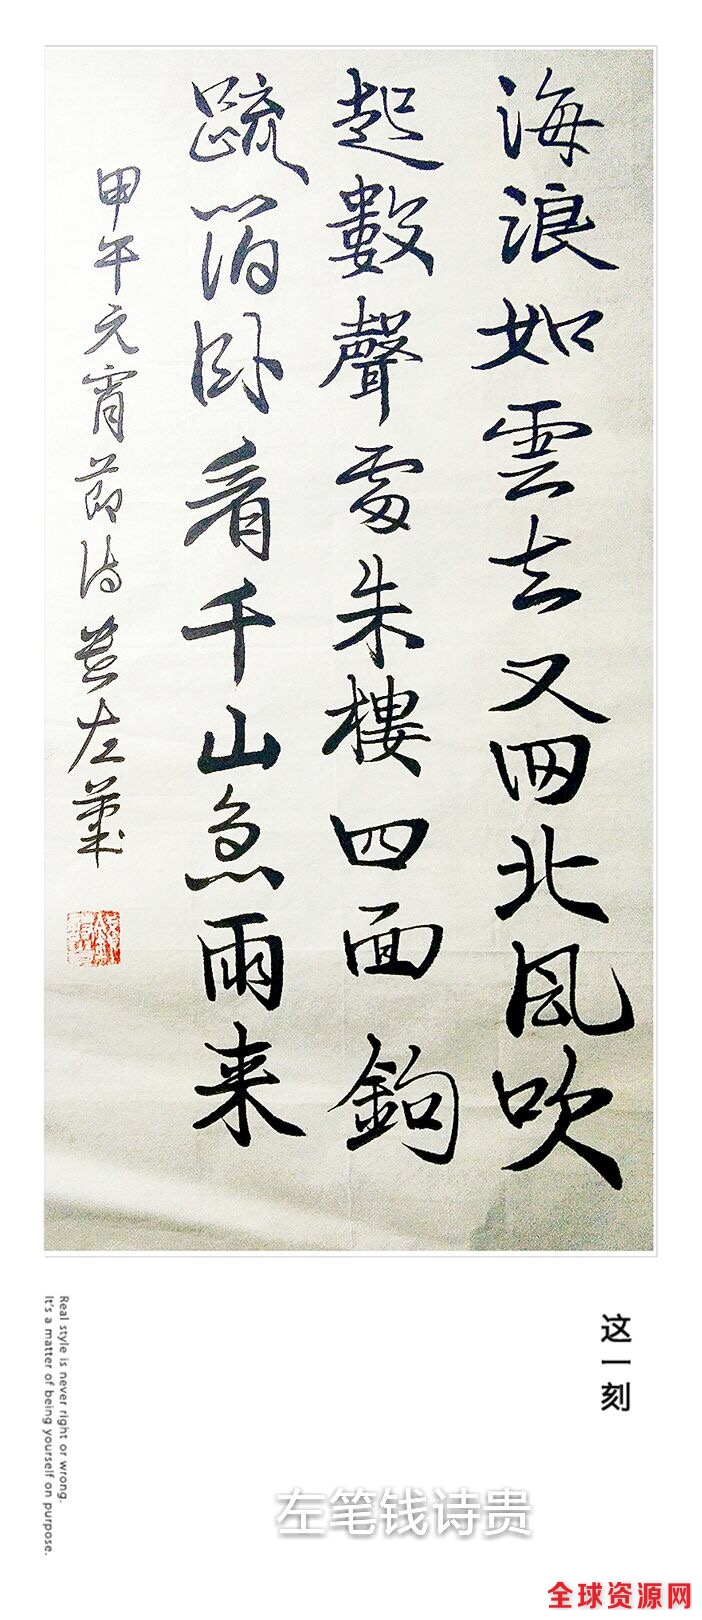 海浪如雲去又回北風吹
起數聲雷朱樓四面鉤
疏箔卧看千山急雨来
甲午元宵節诗贵左筆
这一刻
Real style is never right or wrong.
It's a matter of being yourself on purpose.
左笔钱诗贵
全球资源网